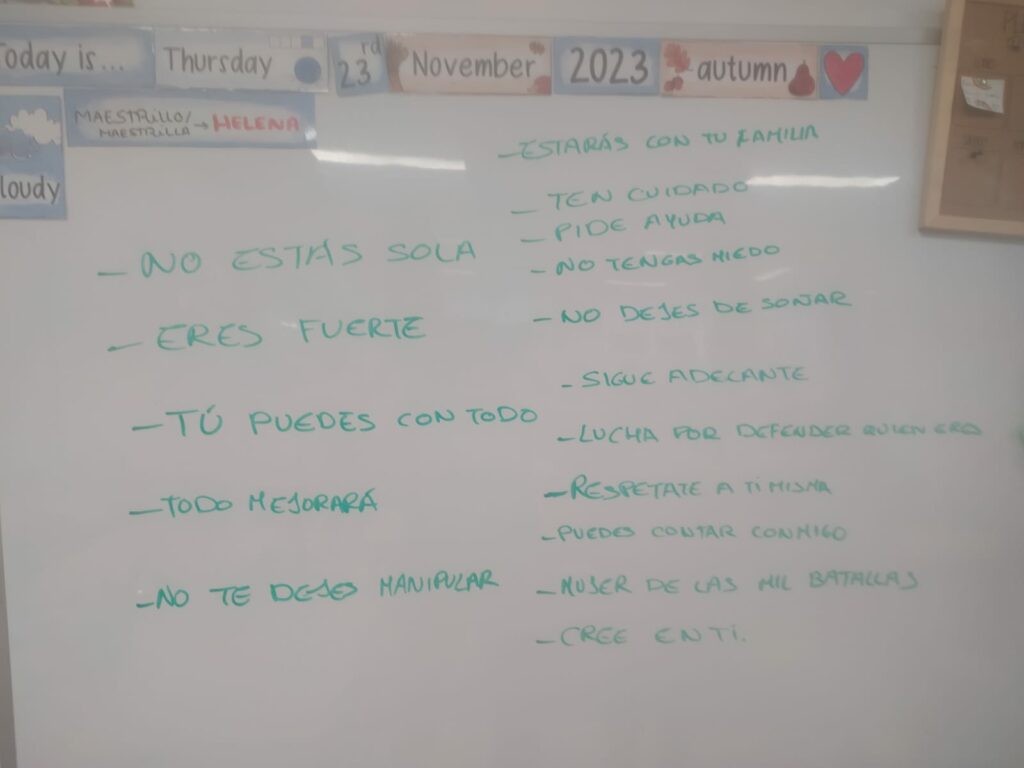 Today is... Thursday 23rd November 2023 autumn
cloudy
MAESTRILLO/
MAESTRILLA → HELENA
- NO ESTÁS SOLA
- ERES FUERTE
- TÚ PUEDES CON TODO
- TODO MEJORARÁ
- NO TE DEJES MANIPULAR
- ESTARÁS CON TU FAMILIA
- TEN CUIDADO
- PIDE AYUDA
- NO TENGAS MIEDO
- NO DEJES DE SOÑAR
- SIGUE ADELANTE
- LUCHA POR DEFENDER QUIEN ERES
- RESPETATE A TI MISMA
- PUEDES CONTAR CONMIGO
- MUJER DE LAS MIL BATALLAS
- CREE EN TI.